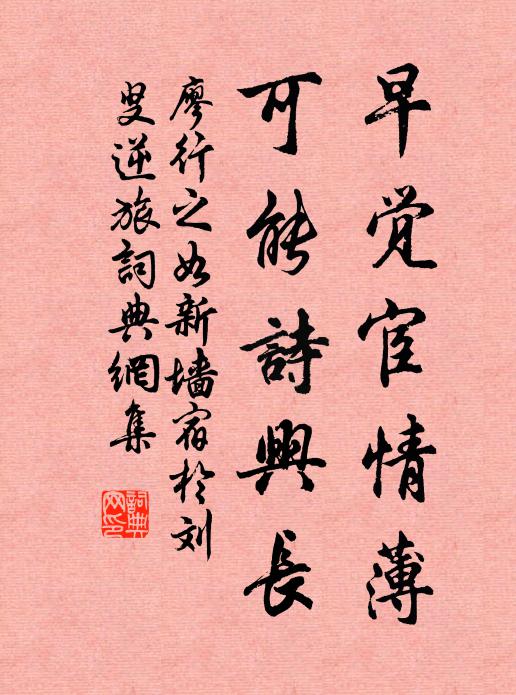 早觉宦情薄
可能詩興長
廖行之如新墙宿於刘
叟逆旅詞典網集
詞典网印